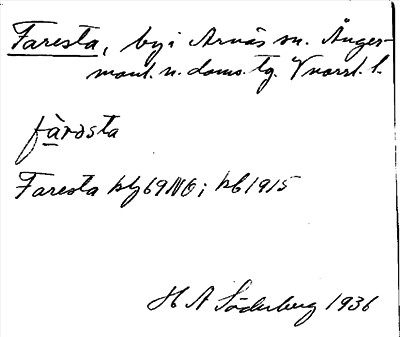 Faresta, by i Arnäs sn. Ånger-
manl. n. doms. tg. Vnorrl. l.
fàrəsta
Faresta kbl 69 NO; kb 1915
H A Söderberg 1936